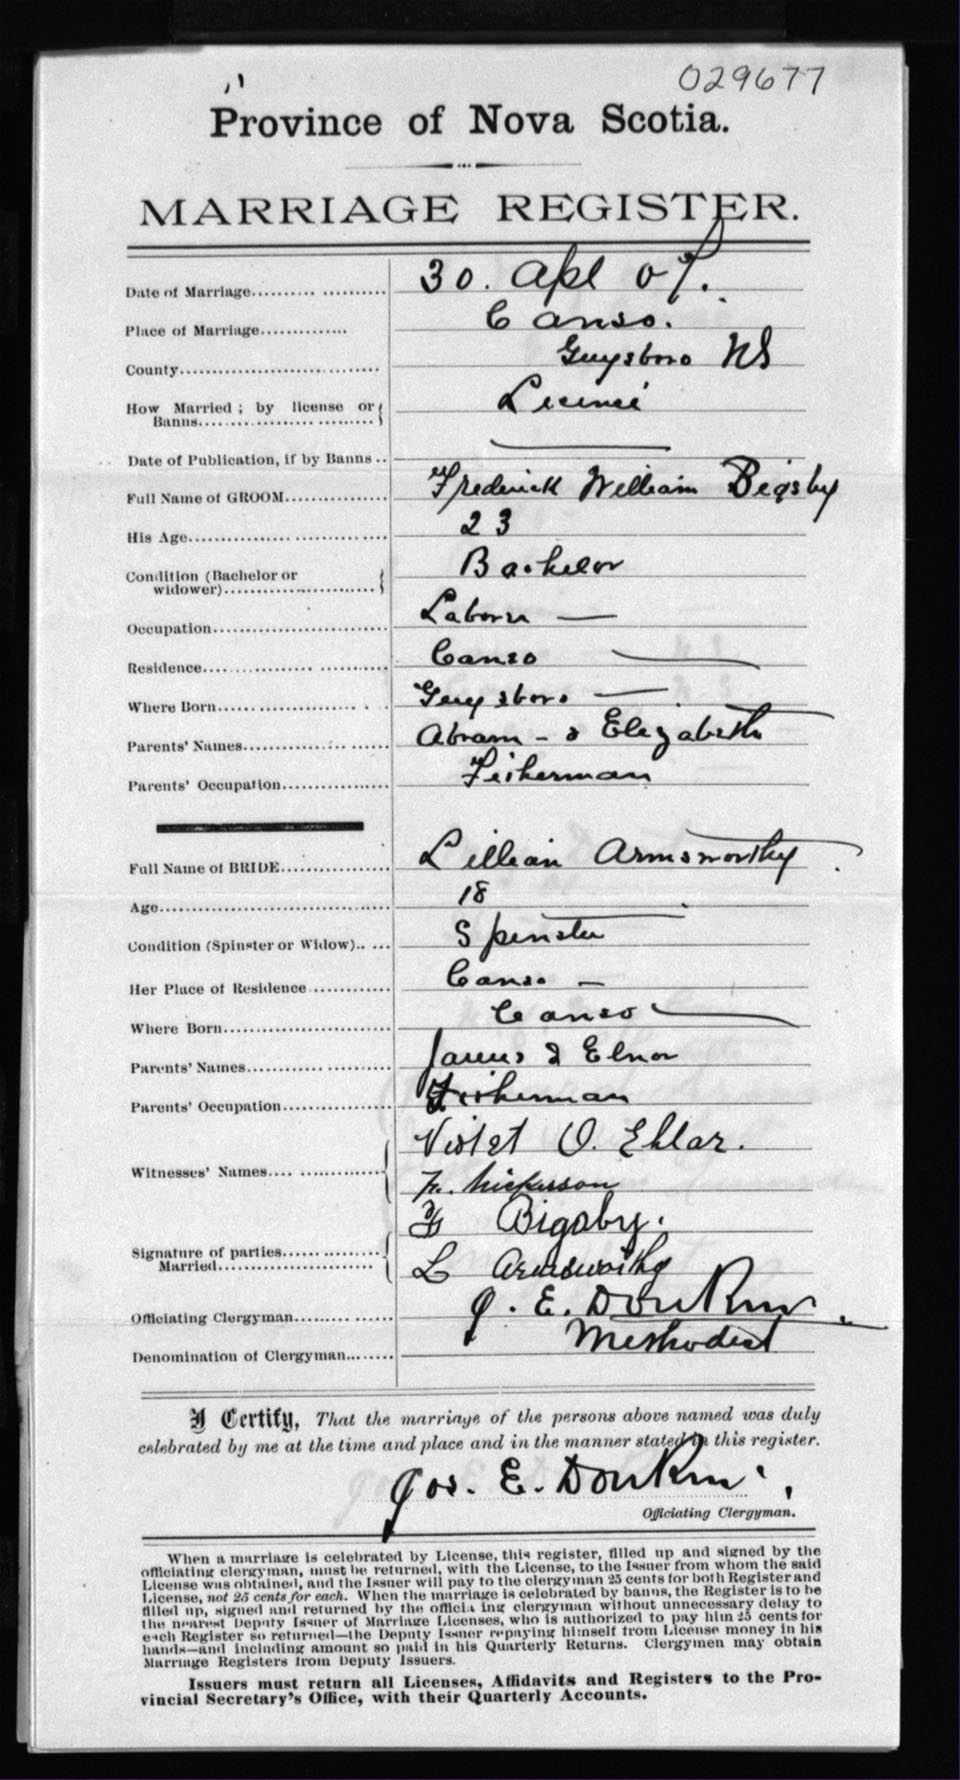 029677
Province of Nova Scotia.
MARRIAGE REGISTER.
Date of Marriage.......... 30. Apl 07.
Place of Marriage.............. Canso.
County.............................. Guysboro NS
How Married ; by license or Banns........................ Licence
Date of Publication, if by Banns ..
Full Name of GROOM............... Frederick William Bigsby
His Age............................. 23
Condition (Bachelor or widower)........................ Bachelor
Occupation.......................... Laborer —
Residence........................... Canso
Where Born.......................... Guysboro —
Parents' Names...................... Abram - & Elizabeth
Parents' Occupation................ Fisherman
Full Name of BRIDE................ Lillian Armsworthy
Age................................. 18
Condition (Spinster or Widow)..... Spinster
Her Place of Residence............ Canso —
Where Born.......................... Canso
Parents' Names...................... James & Elnor
Parents' Occupation................ Fisherman
Witnesses' Names.................. Violet O. Ehlar.
F. Nickerson
Signature of parties Married........................ F Bigsby.
L Armsworthy
Officiating Clergyman............. J. E. Donkin
Denomination of Clergyman........ Methodist
I Certify, That the marriage of the persons above named was duly
celebrated by me at the time and place and in the manner stated in this register.
Jos. E. Donkin
Officiating Clergyman.
When a marriage is celebrated by License, this register, filled up and signed by the
officiating clergyman, must be returned, with the License, to the Issuer from whom the said
License was obtained, and the Issuer will pay to the clergyman 25 cents for both Register and
License, not 25 cents for each. When the marriage is celebrated by banns, the Register is to be
filled up, signed and returned by the officiating clergyman without unnecessary delay to
the nearest Deputy Issuer of Marriage Licenses, who is authorized to pay him 25 cents for
each Register so returned—the Deputy Issuer repaying himself from License money in his
hands—and including amount so paid in his Quarterly Returns. Clergymen may obtain
Marriage Registers from Deputy Issuers.
Issuers must return all Licenses, Affidavits and Registers to the Pro-
vincial Secretary's Office, with their Quarterly Accounts.